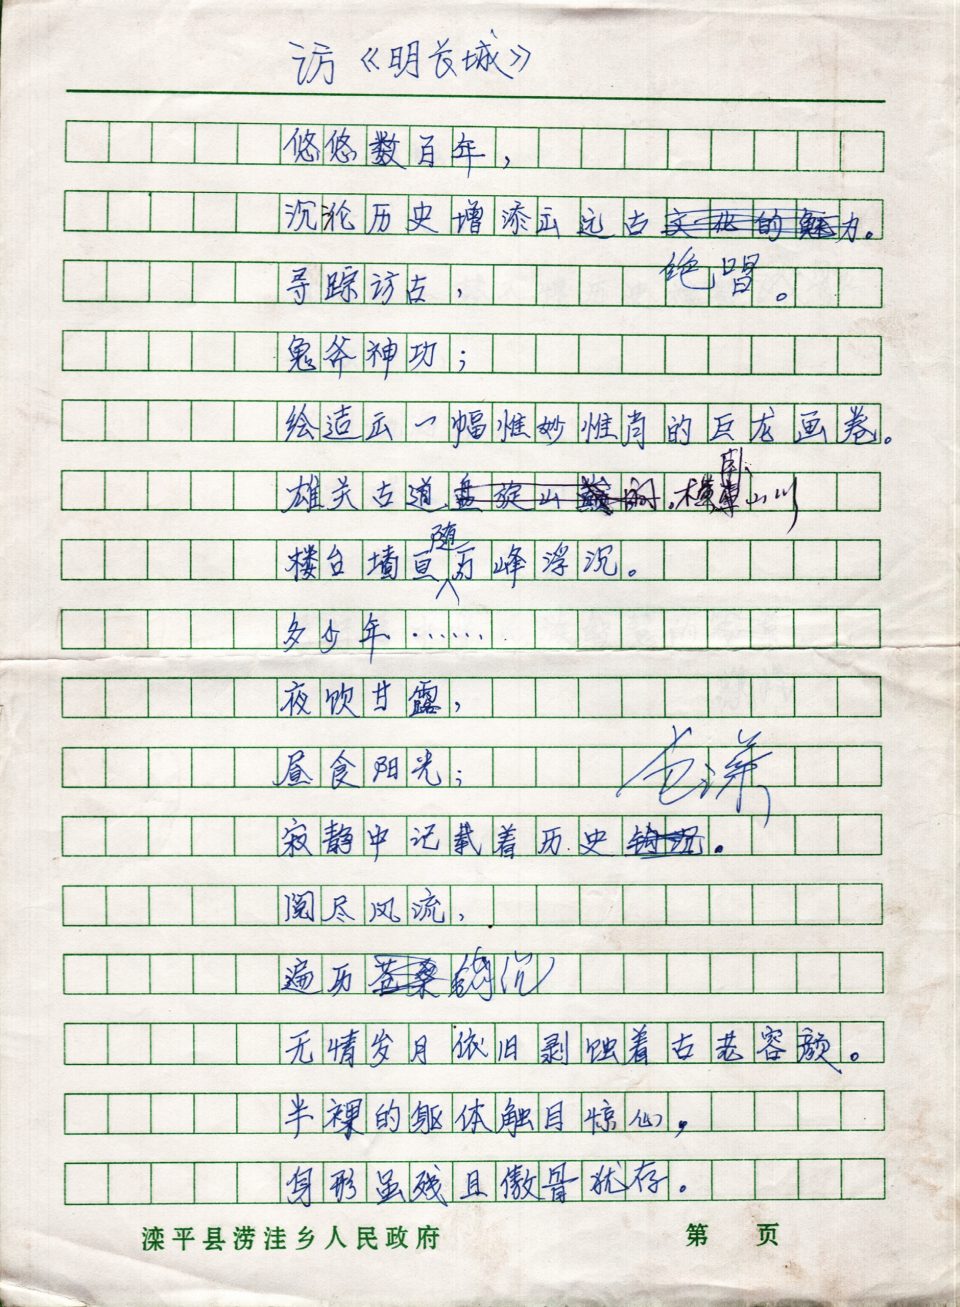 访《明长城》
悠悠数百年，
沉沦历史增添出远古文化的魅力。
绝唱。
寻踪访古，
鬼斧神功；
绘造出一幅惟妙惟肖的巨龙画卷。
雄关古道盘旋山 横卧山川
楼台墙亘随万峰浮沉。
多少年……
夜饮甘露，
昼食阳光；
寂静中记载着历史钩沉。
阅尽风流，
遍历苍桑钩沉
无情岁月依旧剥蚀着古老容颜。
半裸的躯体触目惊心，
身形虽残且傲骨犹存。
滦平县涝洼乡人民政府
第 页